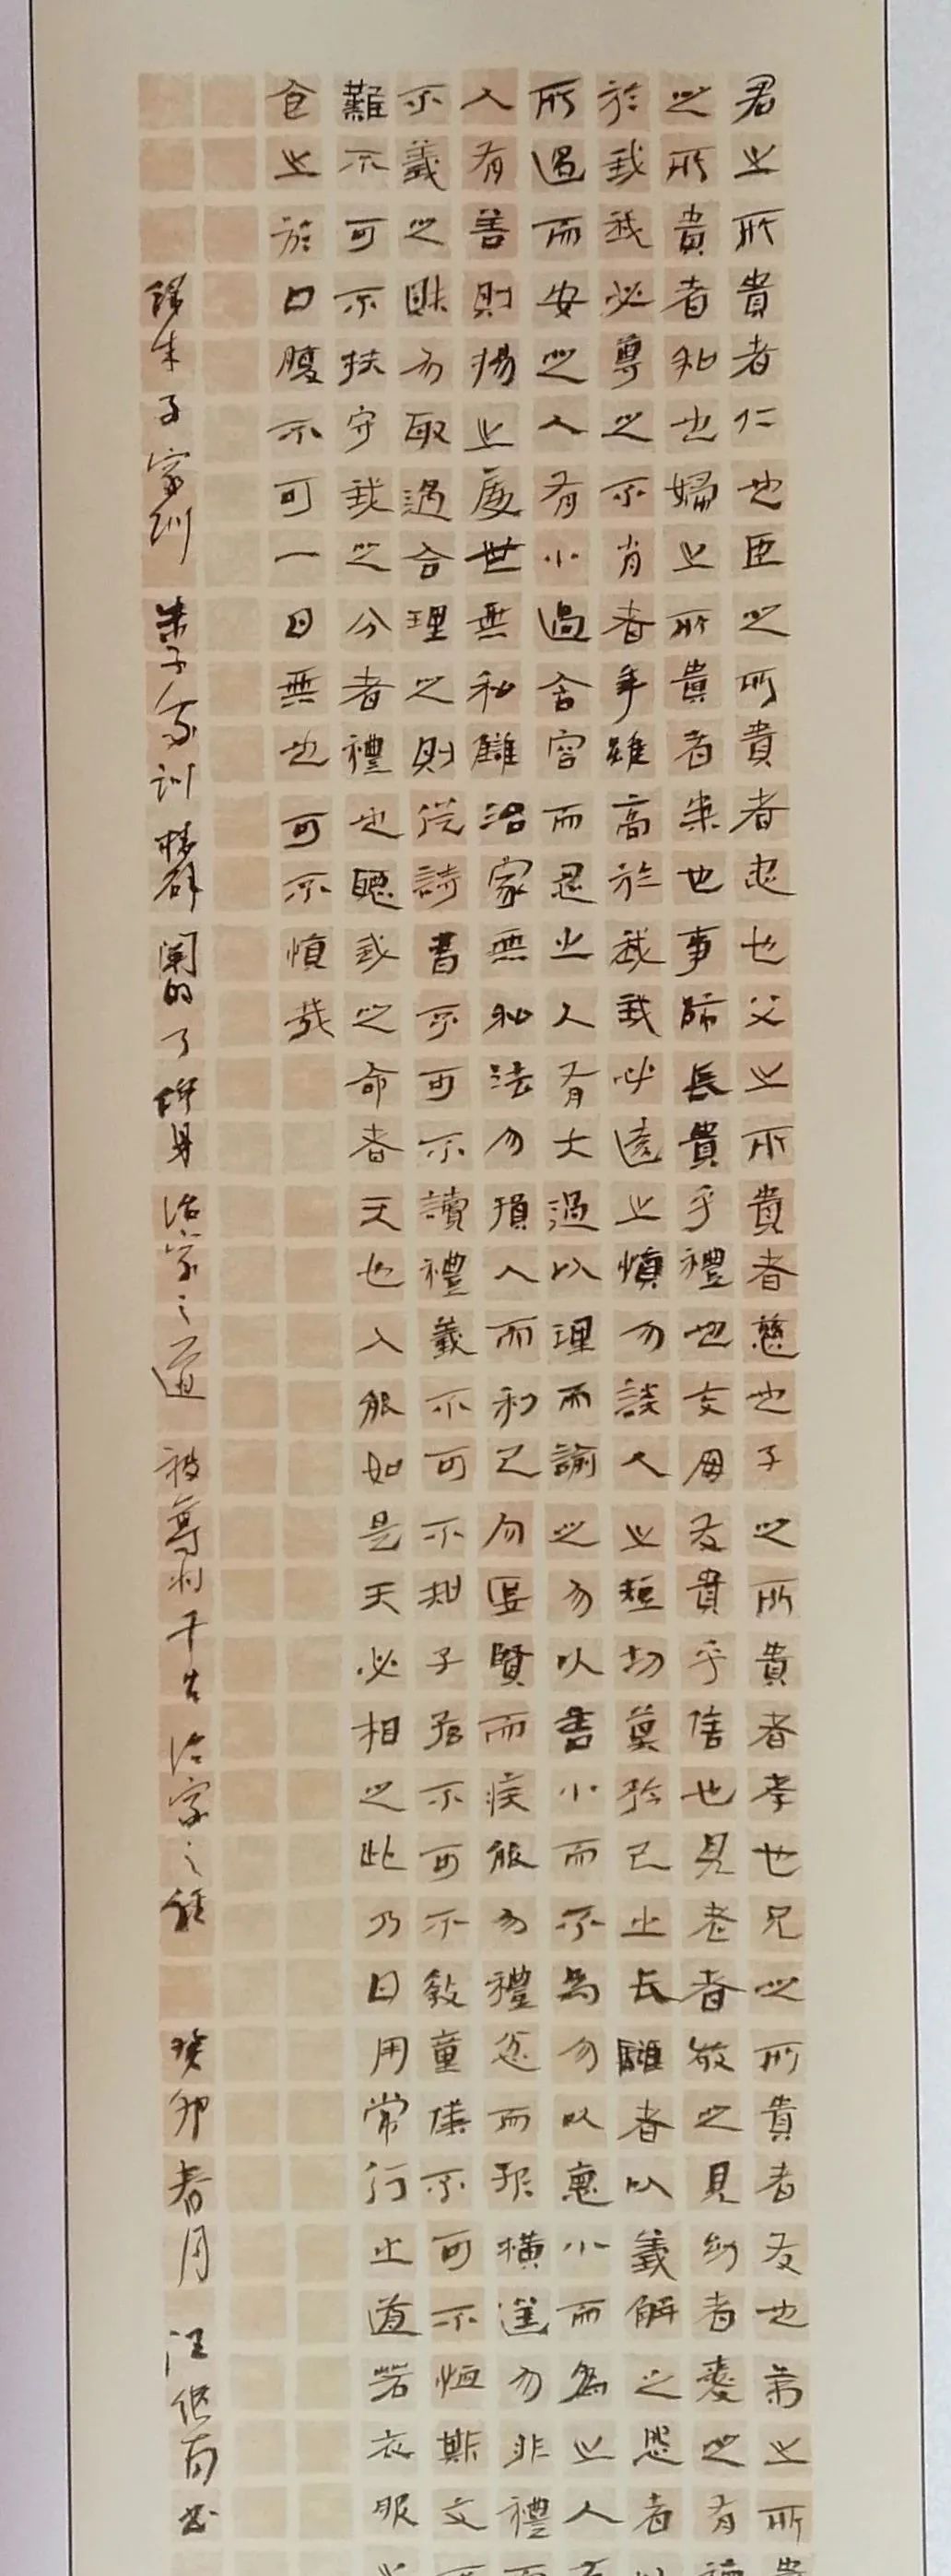 君之所貴者仁也臣之所貴者忠也父之所貴者慈也子之所貴者孝也兄之所貴者友也弟之所貴
之所貴者和也婦之所貴者柔也事師長貴乎禮也交朋友貴乎信也見老者敬之見幼者愛之有德
於我我必尊之不肖者年雖高於我我必遠之慎勿談人之短切莫矜己之長讎者以義解之怨者以
所過而安之人有小過含容而忍之人有大過以理而諭之勿以善小而不為勿以惡小而為之人有
人有善則揚之處世無私讎治家無私法勿損人而利己勿妒賢而嫉能勿禮忿而報橫逆勿非禮而
不義之財勿取遇合理之則從詩書不可不讀禮義不可不知子孫不可不教童僕不可不恤斯文不
難不可不扶守我之分者禮也聽我之命者天也人能如是天必相之此乃日用常行之道若衣服之
食之於口腹不可一日無也可不慎哉
錄朱子家訓 朱子家訓精辟闡明了修身治家之道 被尊为千古治家之經 癸卯春月 汪